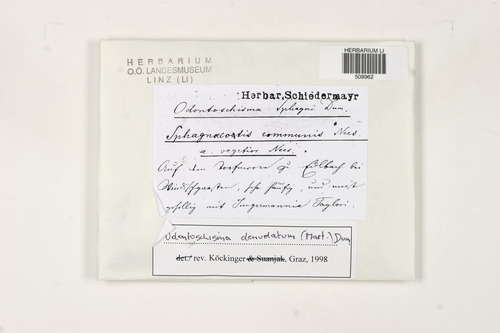 HERBARIUM
O.Ö. LANDESMUSEUM
LINZ (LI)
HERBARIUM LI
508962
Herbar, Schiedermayr
Odontoschisma Sphagni Dum.
Sphagnoecetis communis Nees.
α. vegetior Nees.
Auf dem Torfmoore zu Edlbach bei
Windischgarsten, sehr häufig, und meist
gesellig mit Jungermannia Taylori.
Odontoschisma denudatum (Mart.) Dum
det./ rev. Köckinger & Suanjak, Graz, 1998